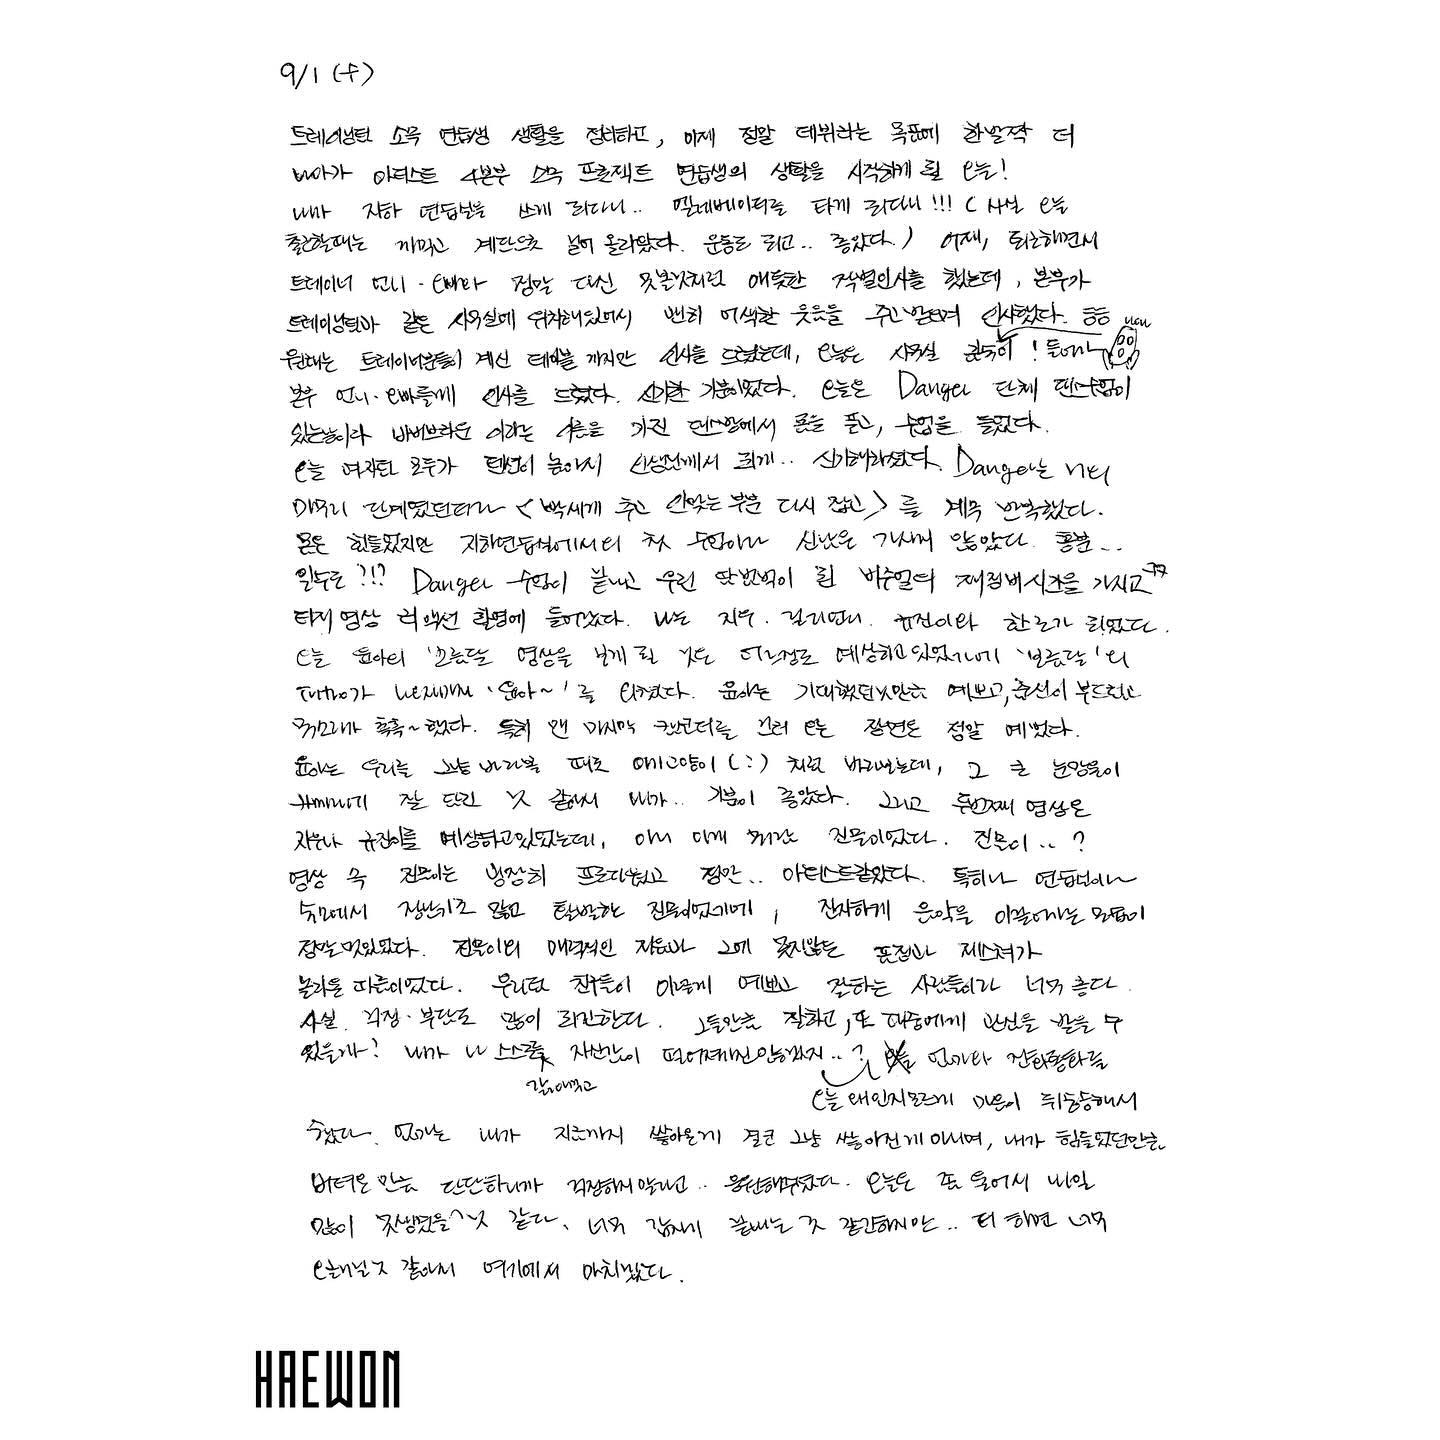 9/1 (수)
트레이닝팀 소속 연습생 생활을 정리하고, 이제 정말 데뷔라는 목표에 한발짝 더
나아가 아티스트 4본부 소속 프로젝트 연습생의 생활을 시작하게 될 오늘!
내가 지하 연습실을 쓰게 되다니.. 엘레베이터를 타게 되다니!!! (사실 오늘
출근할때는 까먹고 계단으로 걸어 올라왔다. 운동도 되고.. 좋았다.) 어제, 퇴근하면서
트레이너 언니·오빠와 정말 다신 못볼것처럼 애틋한 작별인사를 했는데, 본부가
트레이닝팀과 같은 사무실에 위치해있어서 뻔히 어색한 웃음을 주고받으며 인사했다. ㅎㅎ
원래는 트레이너분들이 계신 테이블 까지만 인사를 드렸는데, 오늘은 사무실 깊숙이! 들어가
본부 언니·오빠들께 인사를 드렸다. 신기한 기분이었다. 오늘은 Danger 단체 댄스수업이
있는날이라 바버브라운 이라는 이름을 가진 댄스방에서 몸을 풀고, 수업을 들었다.
오늘 여자팀 모두가 텐션이 높아서 선생님께서 되게.. 신기해하셨다. Danger는 나머
마무리 단계였던터라 <빡세게 추고 안맞는 부분 다시 잡고>를 계속 반복했다.
몸은 힘들었지만 지하연습실에서의 첫 수업이라 신났은 가시지 않았다. 흥분..
일수도?!? Danger 수업이 끝나고 우린 몇번먹이 될 비수얼의 재정비시간을 가지고
티저 영상 리액션 촬영에 들어갔다. 나는 지우·릴리언니·규진이와 한조가 되었다.
오늘 윤아의 '보름달' 영상을 보게 될 것은 어느정도 예상하고있었기에 '보름달'의
intro가 나오자마자 '윤아~'를 외쳤다. 윤아는 기대했던것만큼 예쁘고, 춤선이 부드럽고
목소리가 촉촉~했다. 특히 맨 마지막 카메라를 보러 오는 장면은 정말 예뻤다.
윤아는 우리를 그냥 바라볼 때도 애기고양이(:) 처럼 바라보는데, 그 큰 눈망울이
카메라에 잘 담긴 것 같아서 내가.. 기분이 좋았다. 그리고 두번째 영상은
지우나 규진이를 예상하고있었는데, 아니 이게 뭐람 진솔이었다. 진솔이..?
영상 속 진솔이는 굉장히 프로다웠고 정말.. 아티스트같았다. 특히나 연습실이나
숙소에서 장난기도 많고 털털한 진솔이었기에, 진지하게 음악을 이끌어가는 모습이
정말 멋있었다. 진솔이의 매력적인 자음과 그에 못지않은 표정과 제스처가
놀라울 따름이었다. 우리팀 친구들이 이렇게 예쁘고 잘하는 사람들이라 너무 좋다.
사실 걱정·부담도 많이 되긴한다. 그들만큼 잘하고, 또 대중에게 관심을 받을 수
있을까? 내가 나 스스로를 갉아먹고 자신감이 떨어져가진 않을런지..? 오늘 왠지모르게 마음이 뒤숭숭해서 언니와 전화통화를
했다. 언니는 내가 지금까지 쌓아온게 결코 그냥 쌓아진게 아니며, 내가 힘들었던만큼
버텨온 만큼 단단하니까 걱정하지말라고.. 응원해주었다. 오늘은 좀 울어서 내일
많이 못생겼을 것 같다. 너무 갑자기 끝내는 것 같긴하지만.. 더 하면 너무
오래걸릴것 같아서 여기에서 마치겠다.
HAEWON